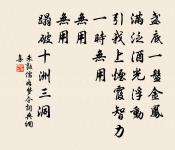 盞底一盤金鳳
滿泛酒光浮動
引我上煙霞智力
一時無用
無用
無用
蹋破十洲三洞
朱敦儒如夢令詞